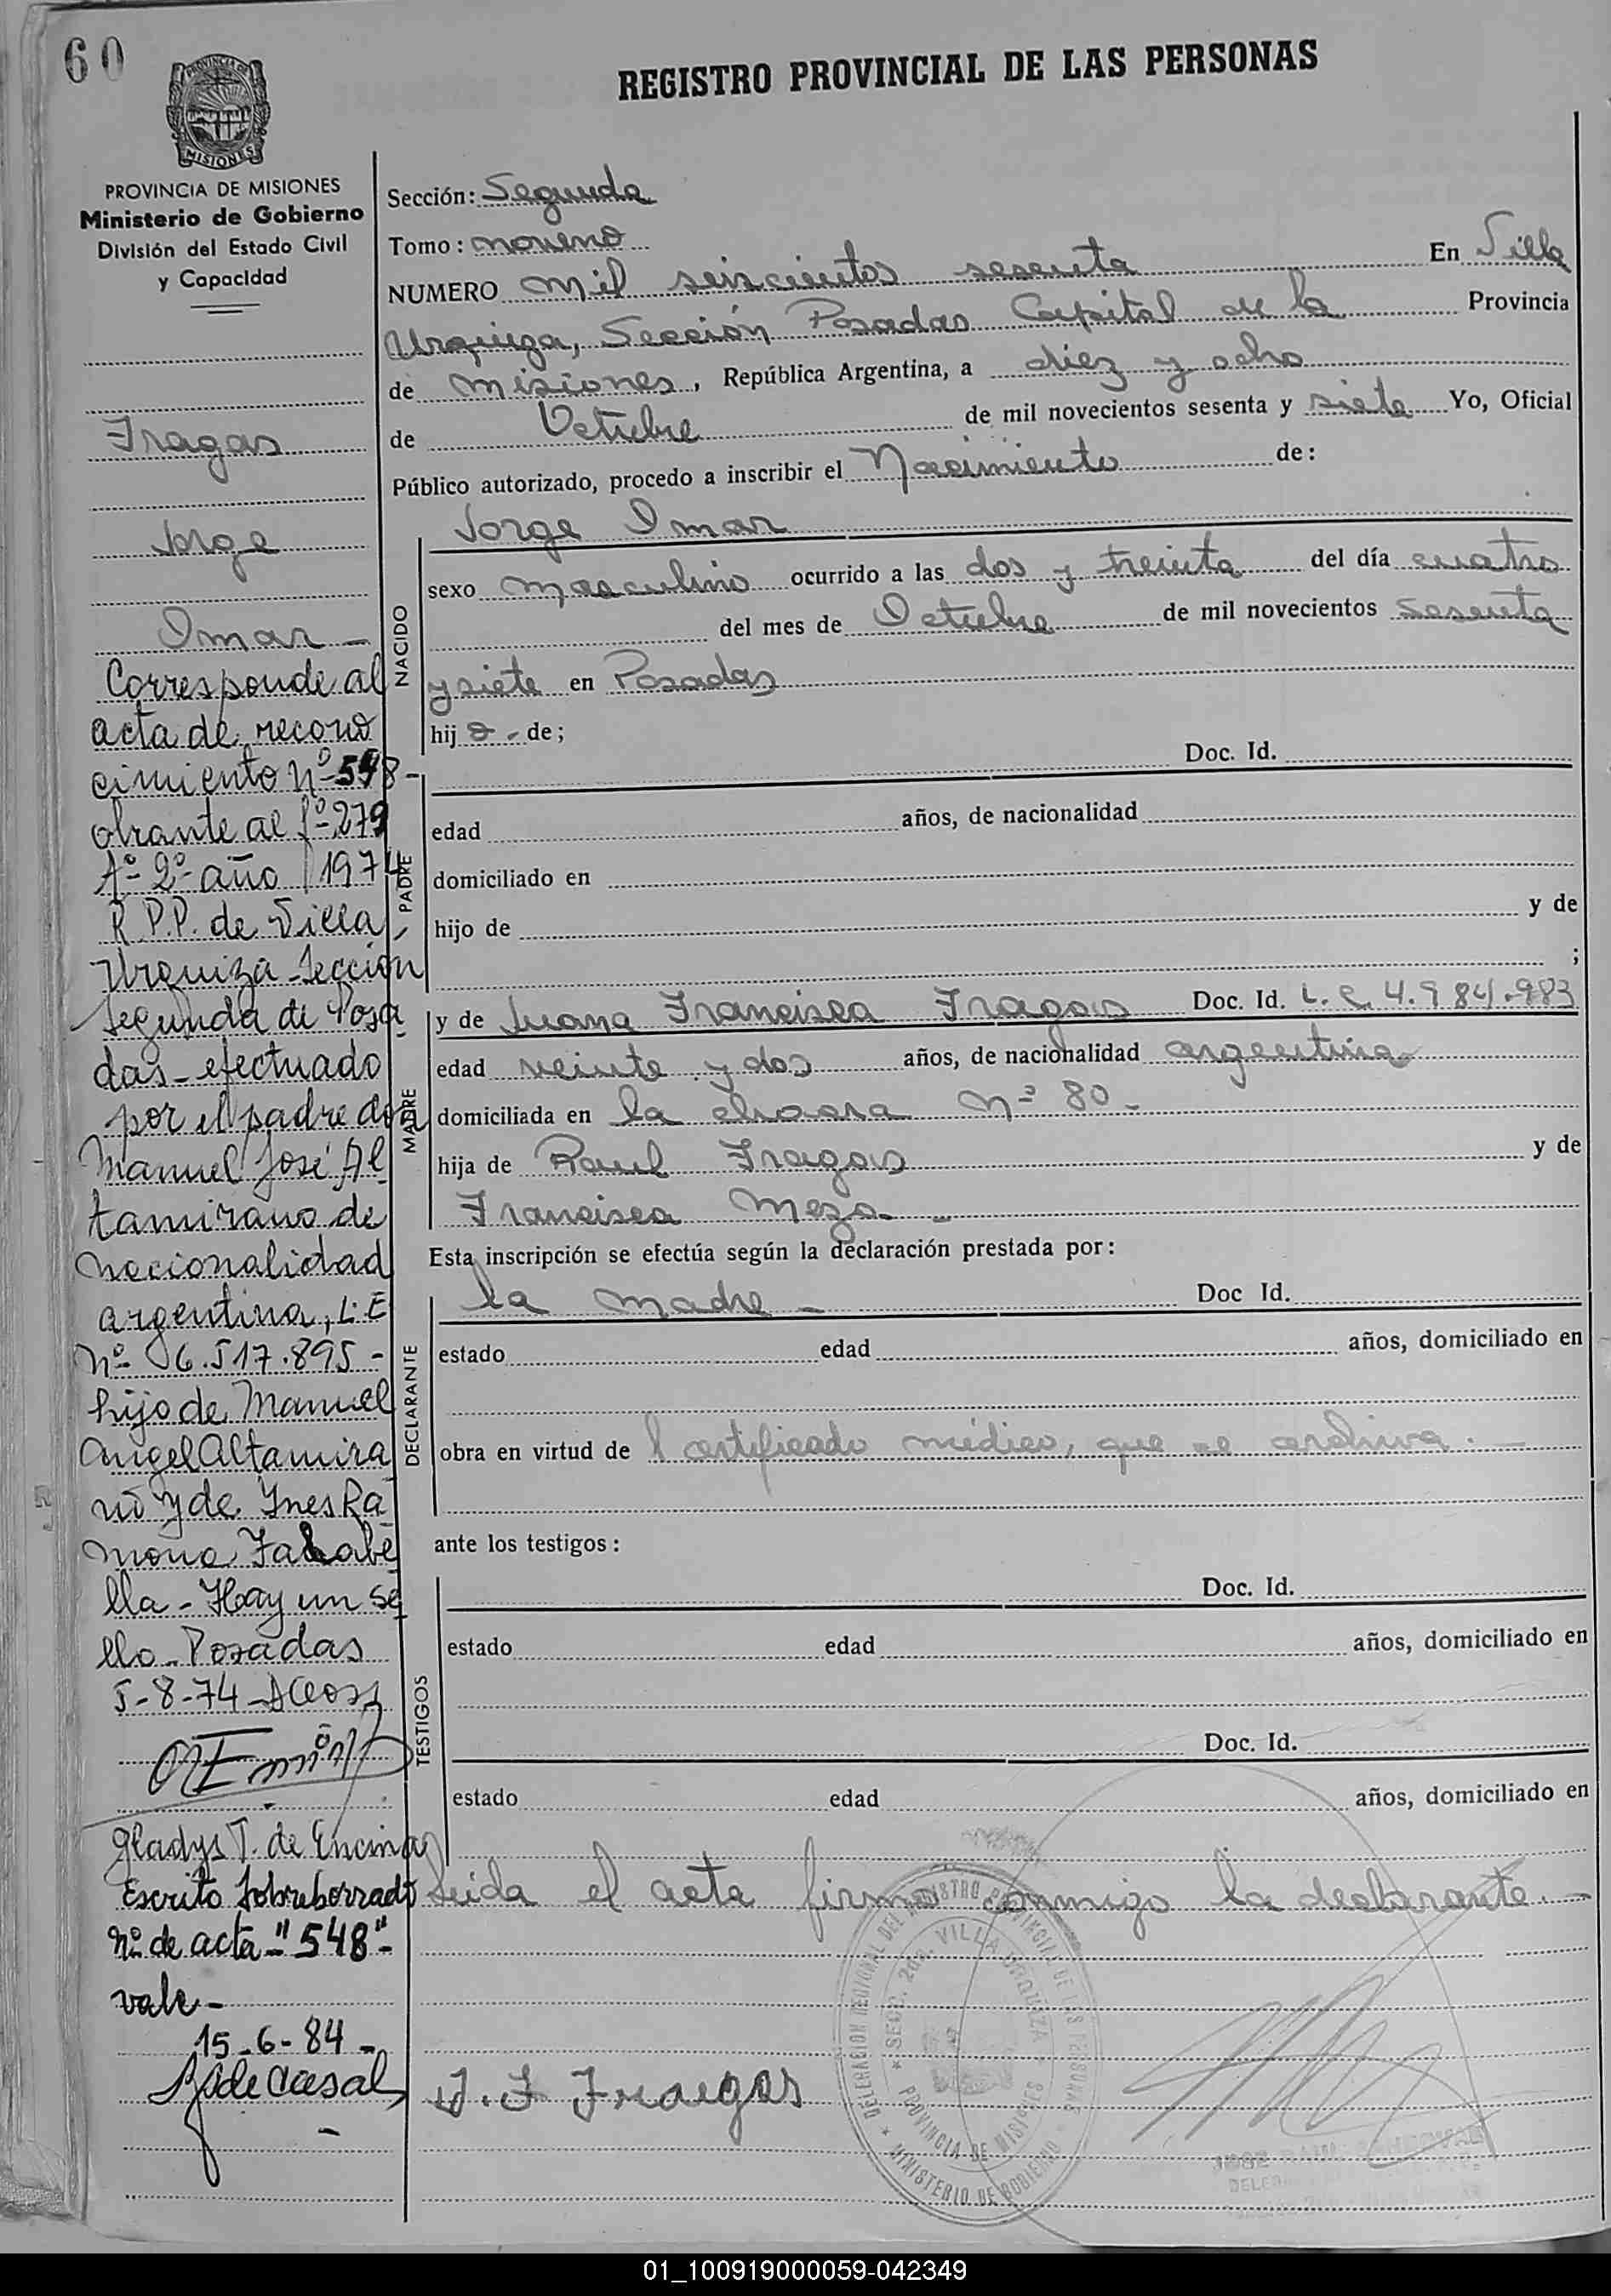 60
REGISTRO PROVINCIAL DE LAS PERSONAS
PROVINCIA DE
MISIONES
PROVINCIA DE MISIONES
Ministerio de Gobierno
División del Estado Civil
y Capacidad
Fragas
Jorge
Omar -
Corresponde al
acta de recono
cimiento nº 548-
obrante al fº 279
Tº 2º año 1974
R.P.P. de Villa
Urquiza Sección
Segunda de Posa
das - efectuado
por el padre don
Manuel José Al
tamirano de
nacionalidad
argentina, L.E
nº 6.517.895-
hijo de Manuel
Angel Altamira
no y de Ines Ra
mona
lla - Hay un se
llo - Posadas
5-8-74
Gladys T. de Encina
Escrito sobreborrado
nº de acta "548"-
vale -
15-6-84-
de Casal
Sección: Segunda
Tomo: noveno
NUMERO mil seiscientos sesenta En Villa
Urquiza, Sección Posadas Capital de la Provincia
de Misiones, República Argentina, a diez y ocho
de Octubre de mil novecientos sesenta y siete Yo, Oficial
Público autorizado, procedo a inscribir el Nacimiento de:
NACIDO
Jorge Omar
sexo masculino ocurrido a las dos y treinta del día cuatro
del mes de Octubre de mil novecientos sesenta
y siete en Posadas
hijo - de;
PADRE
Doc. Id.
edad años, de nacionalidad
domiciliado en
hijo de y de
;
MADRE
y de Juana Francisca Fragas Doc. Id. L.C. 4.984.983
edad veinte y dos años, de nacionalidad argentina
domiciliada en la chacra Nº 80 -
hija de Raul Fragas y de
Francisca Meza -
Esta inscripción se efectúa según la declaración prestada por:
DECLARANTE
la madre - Doc Id.
estado edad años, domiciliado en
obra en virtud de l certificado médico, que se archiva. -
ante los testigos:
TESTIGOS
Doc. Id.
estado edad años, domiciliado en
Doc. Id.
estado edad años, domiciliado en
Leida el acta firma conmigo la declarante. -
J. F. Fraegas
DELEGACION REGIONAL DEL REGISTRO PROVINCIAL DE LAS PERSONAS
* SECC. 2da. VILLA URQUIZA *
PROVINCIA DE MISIONES
* MINISTERIO DE GOBIERNO
01_100919000059-042349